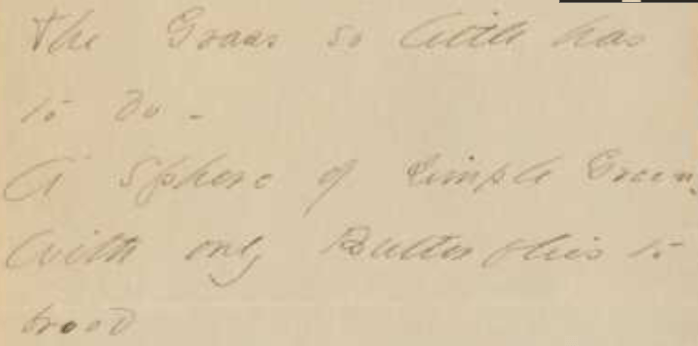 The Grass so little has
to do -
A Sphere of simple Green,
With only Butterflies to
brood